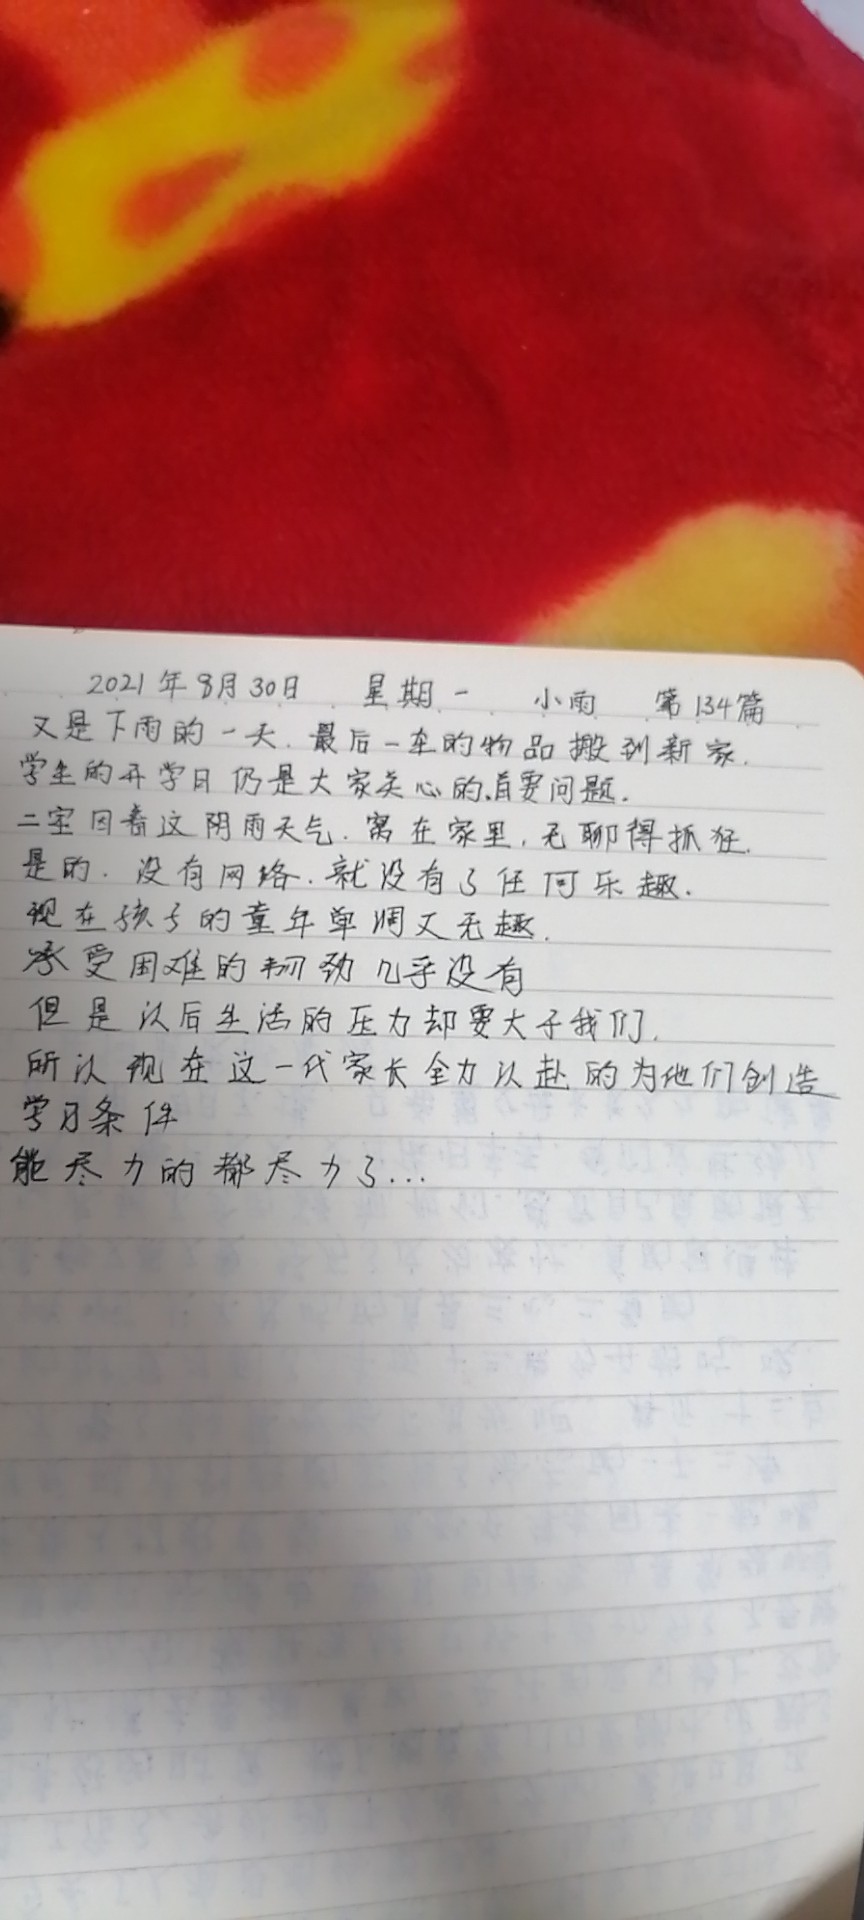 2021年8月30日 星期一 小雨 第134篇
又是下雨的一天.最后一车的物品搬到新家.
学生的开学日仍是大家关心的首要问题.
二宝因着这阴雨天气.窝在家里,无聊得抓狂.
是的.没有网络.就没有了任何乐趣.
现在孩子的童年单调又无趣.
承受困难的韧劲几乎没有
但是以后生活的压力却要大于我们.
所以现在这一代家长全力以赴的为他们创造
学习条件
能尽力的都尽力了...